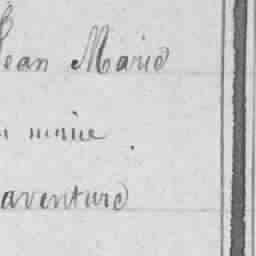 Jean Marie
mine
aventure